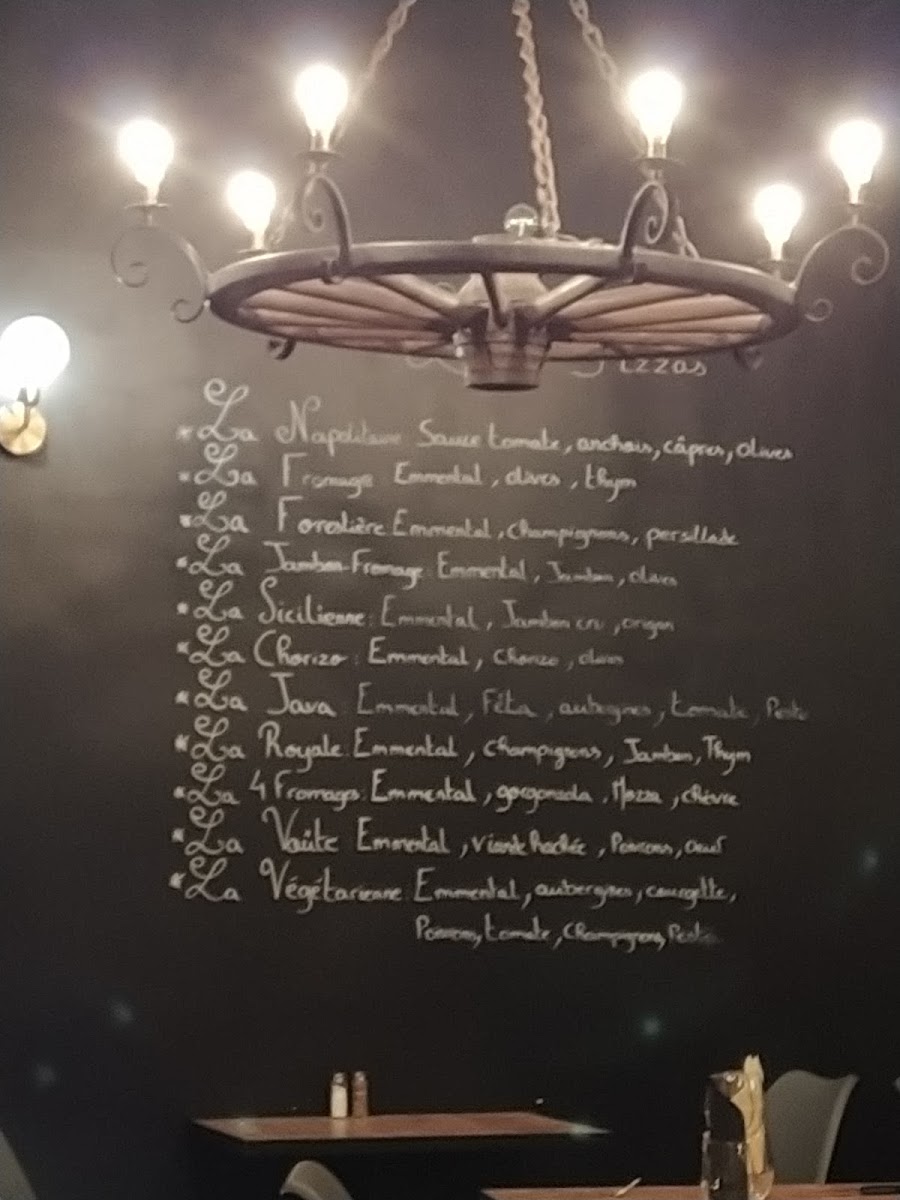 Pizzas
* La Napolitaine Sauce tomate, anchois, câpres, olives
* La Fromage Emmental, olives, thym
* La Forestière Emmental, champignons, persillade
* La Jambon-Fromage Emmental, Jambon, olives
* La Sicilienne: Emmental, Jambon cru, origan
* La Chorizo: Emmental, chorizo, olives
* La Java: Emmental, Féta, aubergines, tomate, Pesto
* La Royale: Emmental, champignons, Jambon, Thym
* La 4 Fromages: Emmental, gorgonzola, Mozza, chèvre
* La Voûte Emmental, viande hachée, Poivrons, oeuf
* La Végétarienne: Emmental, aubergines, courgette,
Poivrons, tomate, Champignons, Pesto